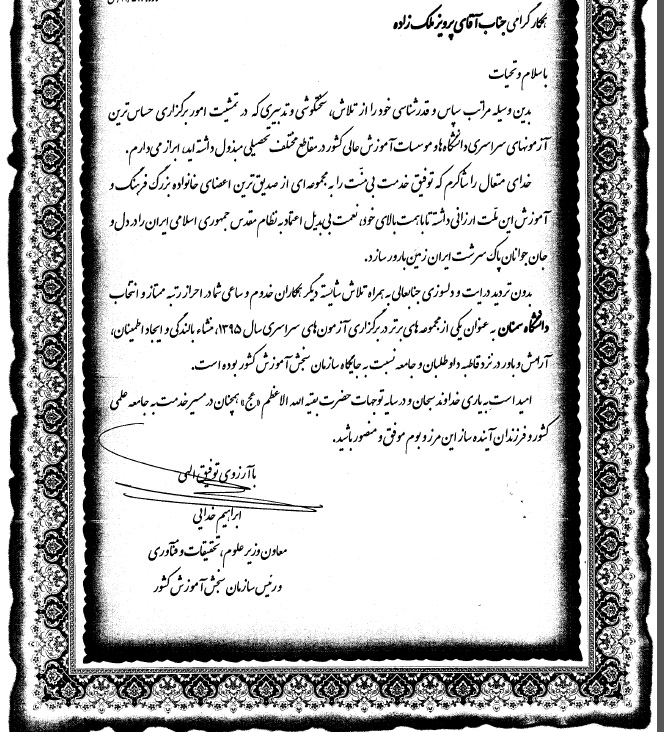 همکار گرامی جناب آقای پرویز ملک زاده
با سلام و تحیات
بدین وسیله مراتب سپاس و قدرشناسی خود را از تلاش، سختکوشی و تدبیری که در تمشیت امور برگزاری حساس ترین
آزمونهای سراسری دانشگاه ها و موسسات آموزش عالی کشور در مقاطع مختلف تحصیلی مبذول داشته اید، ابراز می دارم.
خدای متعال را شاکرم که توفیق خدمت بی منّت را به مجموعه ای از صدیق ترین اعضای خانواده بزرگ فرهنگ و
آموزش این ملّت ارزانی داشته تا با همت بالای خود، نعمت بی بدیل اعتماد به نظام مقدس جمهوری اسلامی ایران را در دل و
جان جوانان پاک سرشت ایران زمین بارور سازد.
بدون تردید درایت و دلسوزی جنابعالی به همراه تلاش شایسته دیگر همکاران خدوم و ساعی شما در احراز رتبه ممتاز و انتخاب
دانشگاه سمنان به عنوان یکی از مجموعه های برتر در برگزاری آزمون های سراسری سال ۱۳۹۵، منشاء بالندگی و ایجاد اطمینان،
آرامش و باور در نزد قاطبه داوطلبان و جامعه نسبت به جایگاه سازمان سنجش آموزش کشور بوده است.
امید است به یاری خداوند سبحان و در سایه توجهات حضرت بقیه الله الاعظم «عج» همچنان در مسیر خدمت به جامعه علمی
کشور و فرزندان آینده ساز این مرز و بوم موفق و منصور باشید.
با آرزوی توفیق الهی
ابراهیم خدایی
معاون وزیر علوم، تحقیقات و فنّاوری
و رئیس سازمان سنجش آموزش کشور